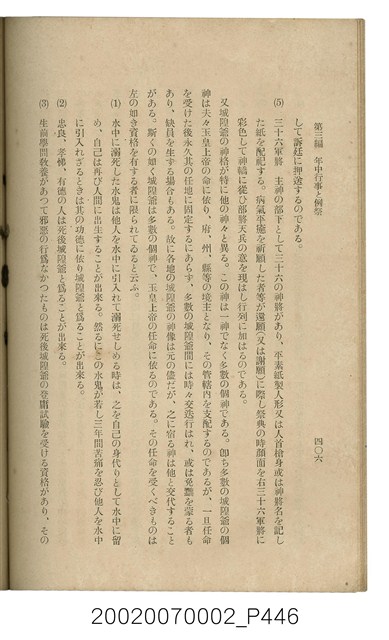 第三編　年中行事と例祭
四〇六
して訴廷に押送するのである。
(5) 三十六軍將　主神の部下として三十六の神將があり、平素紙製人形又は人首槍身或は神將名を記し
た紙を配祀する。病氣平癒を祈願した者等が還願(又は謝願)に際し祭典の時顏面を右三十六軍將に
彩色して神轎に從ひ部將天兵の意を現はし行列に加はるのである。
又城隍爺の神格が特に他の神々と異る。この神は一神でなく多數の個神である。卽ち多數の城隍爺の個
神は夫々玉皇上帝の命に依り、府、州、縣等の境主となり、その管轄內を支配するのであるが、一旦任命
を受けた後永久其の任地に固定するにあらず、多數の城隍爺間には時々交迭行はれ、或は免黜を蒙る者も
あり、缺員を生ずる場合もある。故に各地の城隍爺の神像は元の儘だが、之に宿る神は他と交代すること
がある。斯くの如く城隍爺は多數の個神で、玉皇上帝の任命に依るのである。その任命を受くべきものは
左の如き資格を有する者に限られると云ふ。
(1) 水中に溺死した水鬼は他人を水中に引入れて溺死せしめる時は、之を自己の身代りとして水中に留
め、自己は再び人間に出生することが出來る。然るにこの水鬼が若し三年間苦痛を忍び他人を水中
に引入れざるときは其の功德に依り城隍爺と爲ることが出來る。
(2) 忠良、孝悌、有德の人は死後城隍爺と爲ることが出來る。
(3) 生前學問敎養があつて邪惡の行爲なかつたものは死後城隍爺の登龍試驗を受ける資格があり、その
20020070002_P446